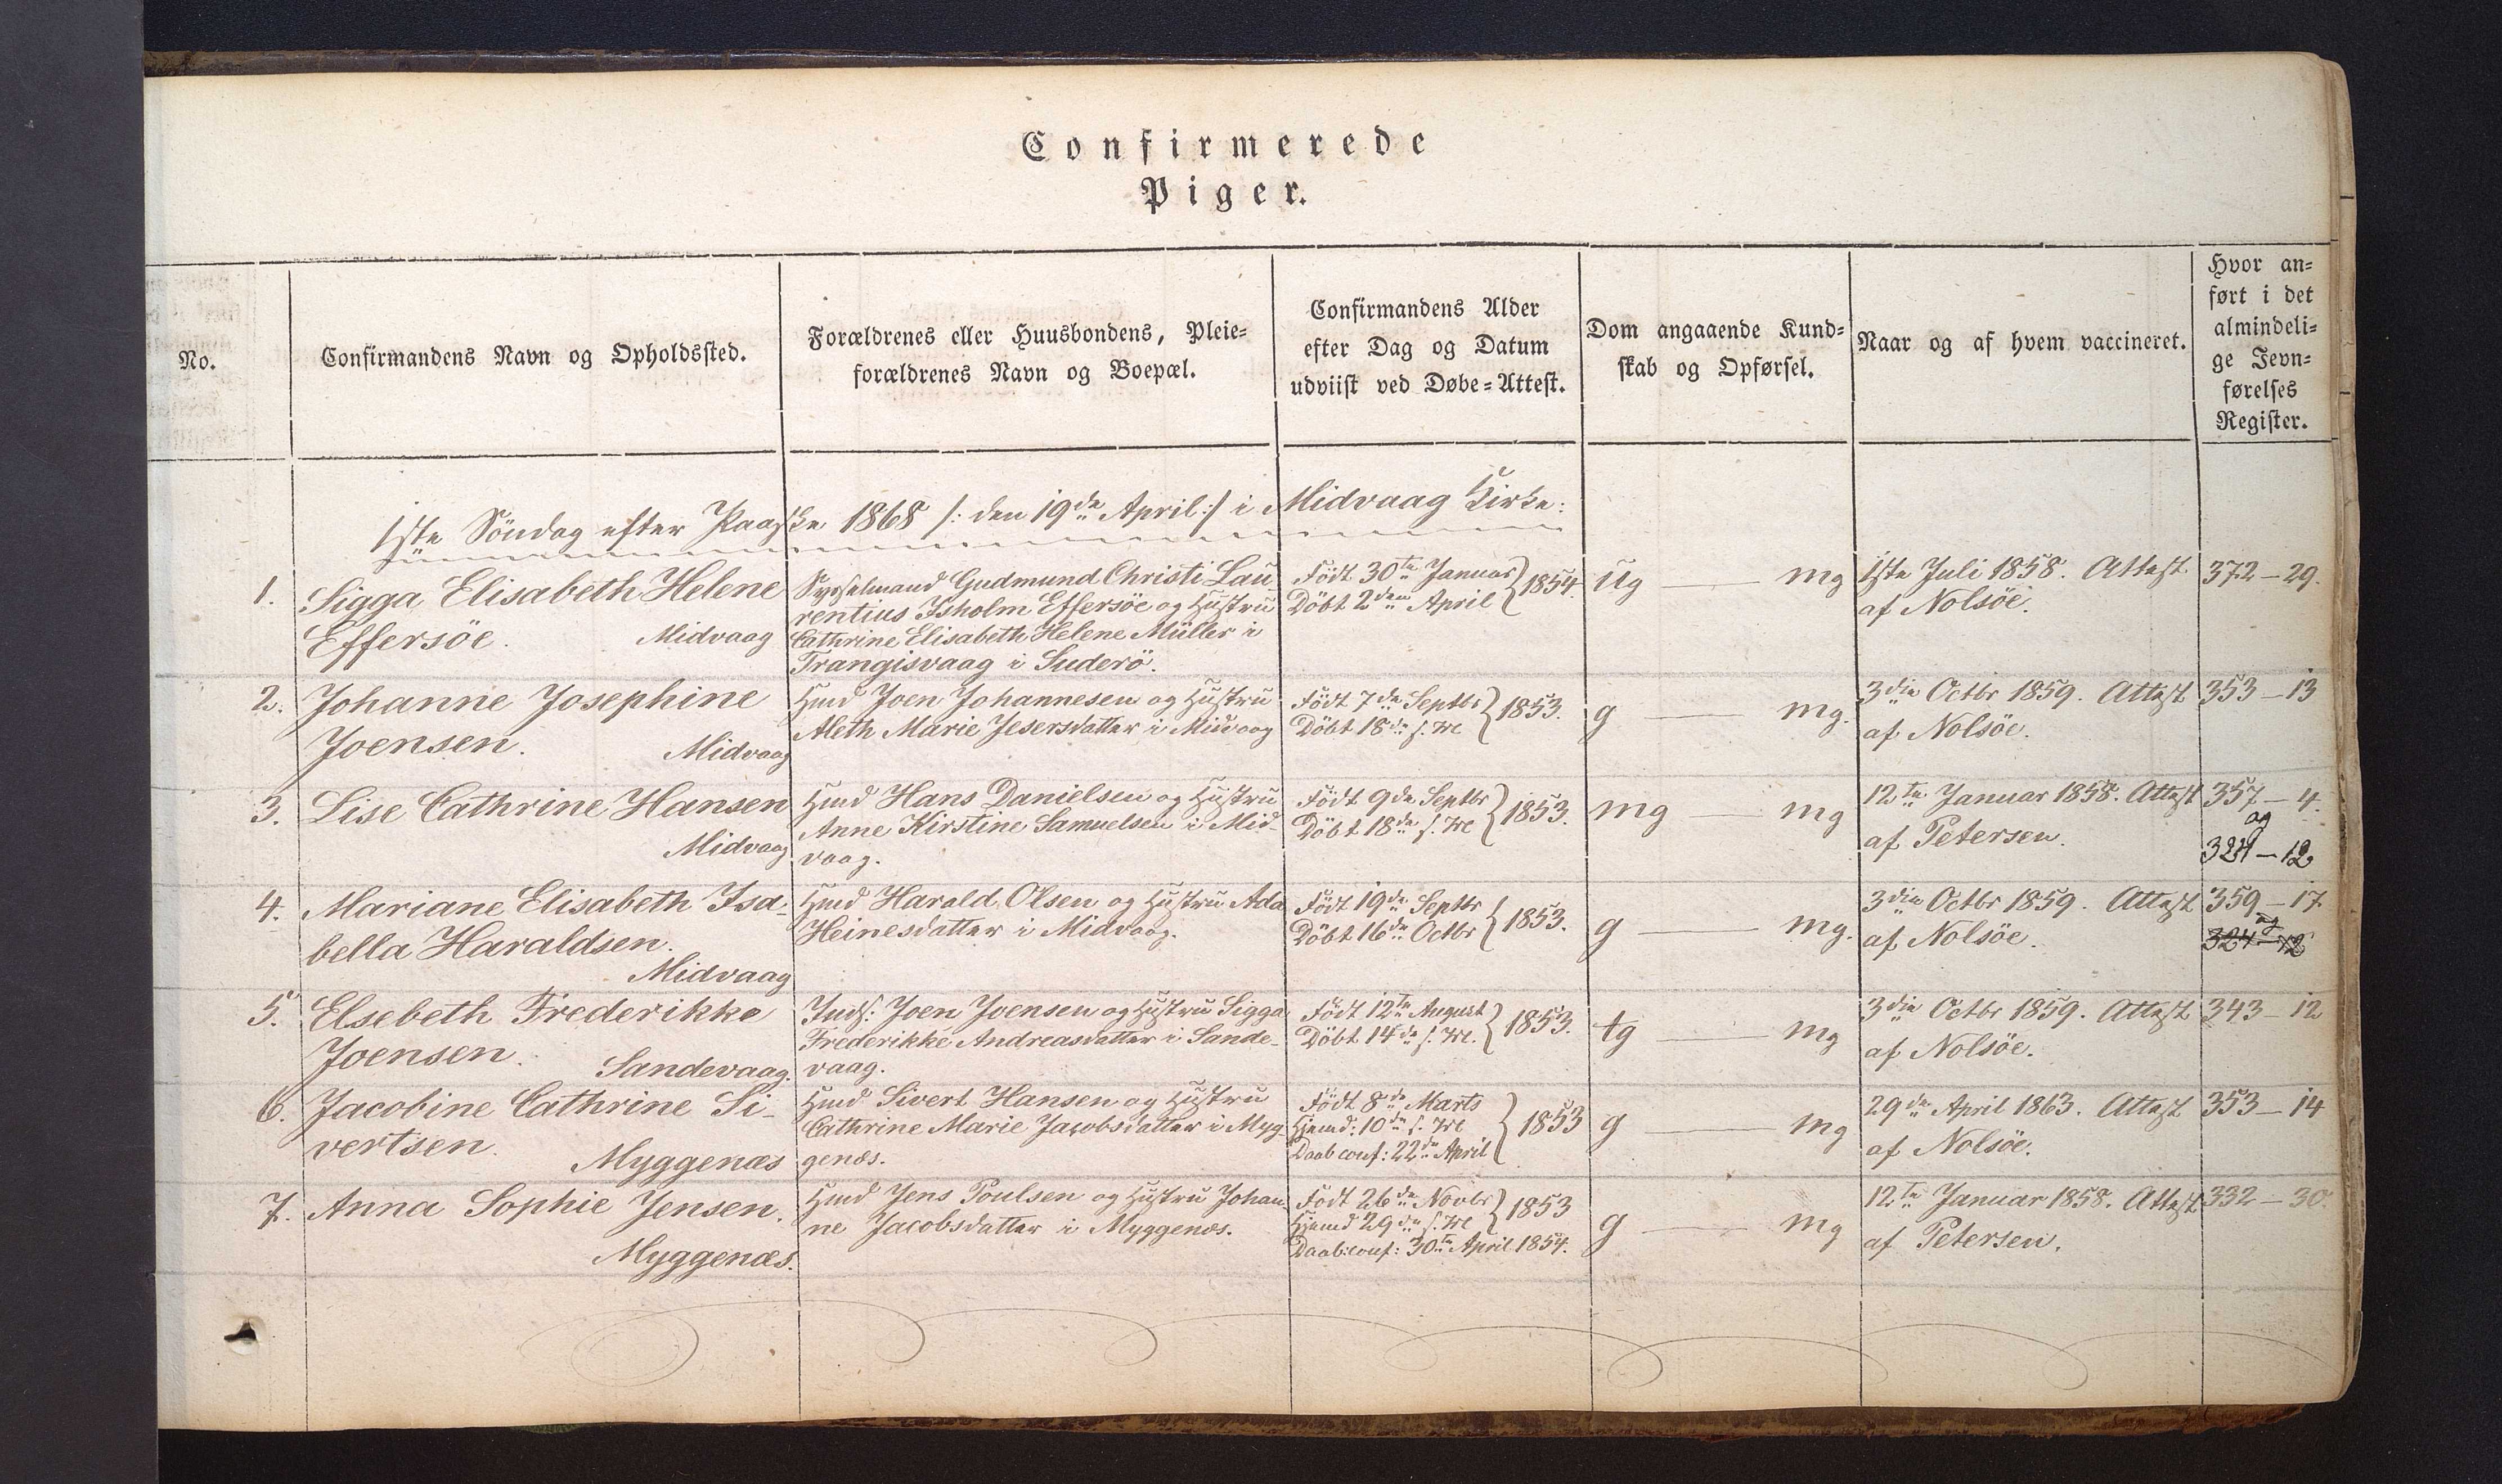 Confirmerede
Piger.
No.
Confirmandens Navn og Opholdssted.
Forældrenes eller Huusbondens, Pleie=
forældrenes Navn og Boepæl.
Confirmandens Alder
efter Dag og Datum
udviist ved Døbe=Attest.
Dom angaaende Kund=
skab og Opførsel.
Naar og af hvem vaccineret.
Hvor an=
ført i det
almindeli=
ge Jevn=
førelses
Register.
1ste Söndag efter Paaske 1868 /: den 19de April :/ i Midvaag Kirke:
1.
Sigga Elisabeth Helene
Effersöe. Midvaag
Sysselmand Gudmund Christi Lau
rentius Isholm Effersöe og Hustru
Cathrine Elisabeth Helene Müller i
Trangisvaag i Suderö.
Födt 30te Januar
Döbt 2den April } 1854.
ug — mg
1ste Juli 1858. Attest
af Nolsöe.
372 – 29.
2.
Johanne Josephine
Joensen. Midvaag
Hmd Joen Johannesen og Hustru
Aleth Marie Jesersdatter i Midvaag
Födt 7de Septbr
Döbt 18de s. M } 1853.
g — mg.
3die Octbr 1859. Attest
af Nolsöe.
353 – 13
3.
Lise Cathrine Hansen
Midvaag
Hmd Hans Danielsen og Hustru
Anne Kirstine Samuelsen i Mid-
vaag.
Födt 9de Septbr
Döbt 18de s. M } 1853.
mg — mg
12te Januar 1858. Attest
af Petersen.
357 – 4.
og
324 – 12
4.
Mariane Elisabeth Isa-
bella Haraldsen.
Midvaag
Hmd Harald Olsen og Hustru Ada
Heinesdatter i Midvaag.
Födt 19de Septbr
Döbt 16de Octbr } 1853.
g — mg.
3die Octbr 1859. Attest
af Nolsöe.
359 – 17.
og
324 – 12
5.
Elsebeth Frederikke
Joensen. Sandevaag.
Inds: Joen Joensen og Hustru Sigga
Frederikke Andreasdatter i Sande-
vaag.
Födt 12te August
Döbt 14de s. M. } 1853.
tg — mg
3die Octbr 1859. Attest
af Nolsöe.
343 – 12
6.
Jacobine Cathrine Si-
vertsen. Myggenæs
Hmd Sivert Hansen og Hustru
Cathrine Marie Jacobsdatter i Myg-
genæs.
Födt 8de Marts
Hjemd: 10de s. M
Daab conf: 22de April } 1853
g — mg
29de April 1863. Attest
af Nolsöe.
353 – 14
7.
Anna Sophie Jensen.
Myggenæs.
Hmd Jens Poulsen og Hustru Johan-
ne Jacobsdatter i Myggenæs.
Födt 26de Novbr
Hjemd 29de s. M } 1853
Daab: conf: 30te April 1854.
g — mg
12te Januar 1858. Attest
af Petersen.
332 – 30.